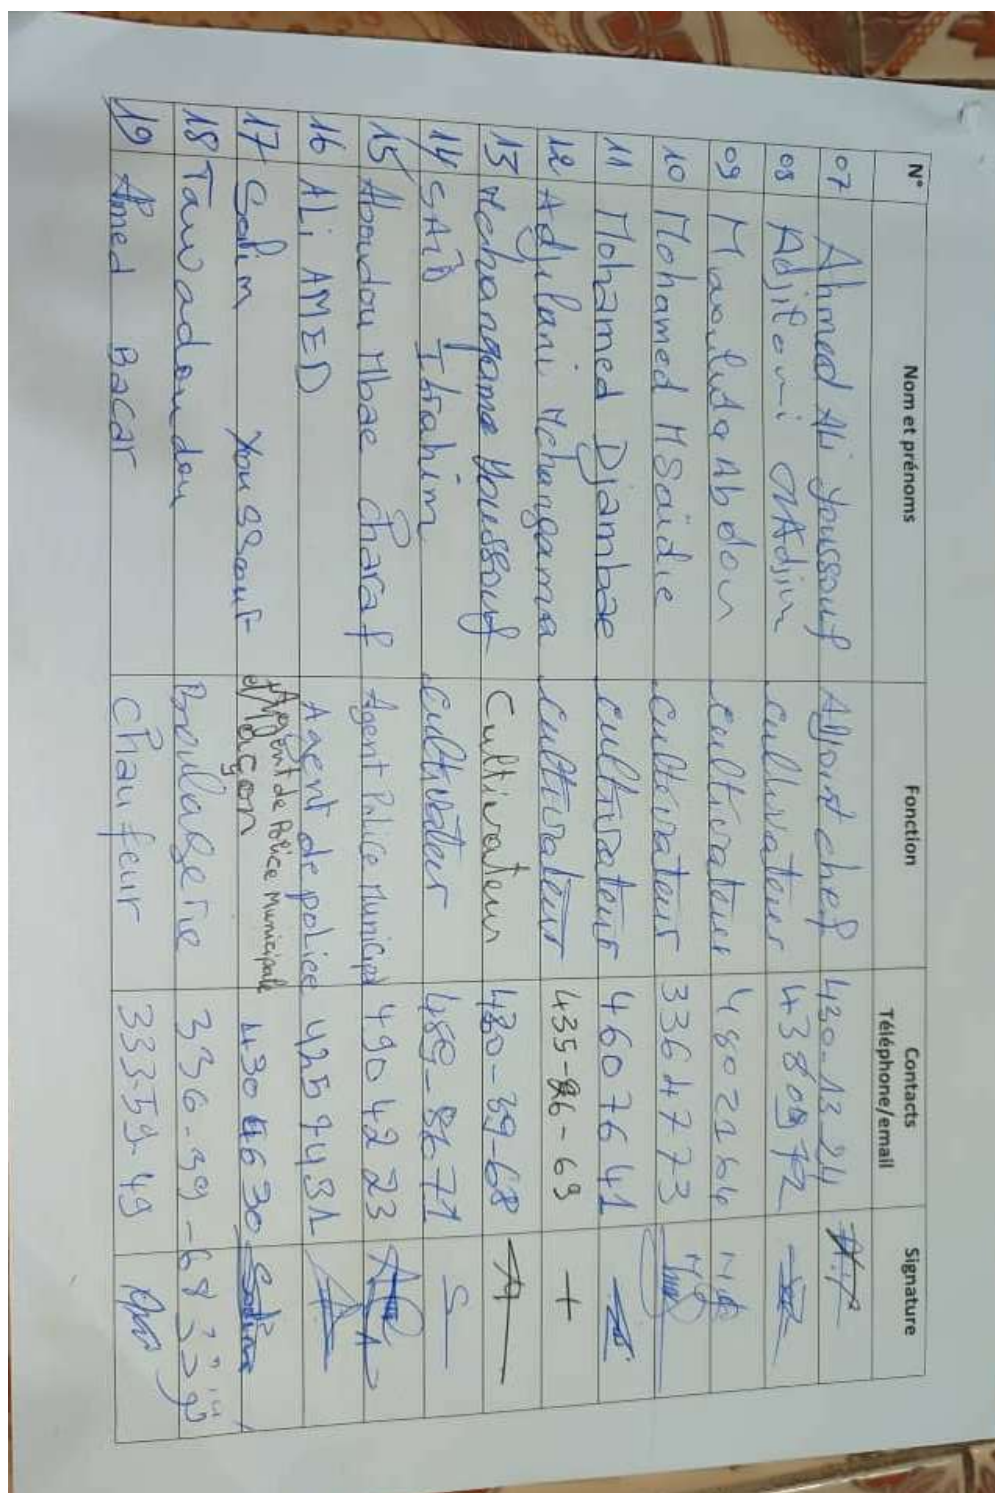 N° Nom et prénoms Fonction Contacts Téléphone/email Signature
07 Ahmed Ali Youssouf Adjoint chef 430-13-24
08 Adjilani cultivateur 4380972
09 Maoulida Abdou cultivateur 4802164
10 Mohamed MSaidie cultivateur 3364773
11 Mohamed Djambae cultivateur 4607641
12 Adjilani Mchangama cultivateur 435-26-69 +
13 Mchangama Youssouf Cultivateur 480-39-68
14 SAÏD Ibrahim cultivater 489-86-71 S
15 Aboudou Mbae charaf Agent Police Municipal 4904223
16 ALi AMED Agent de police 4259431
17 Salim Youssouf Agent de Police Municipale et Maçon 4304630 Salim
18 Tawadoudou Boulagerie 336-39-68
19 Amed Bacar Chaufeur 333-59-49